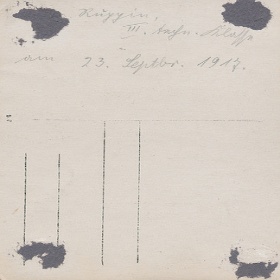 Ruppin,
III. techn. Klasse
am 23. Septbr. 1917.